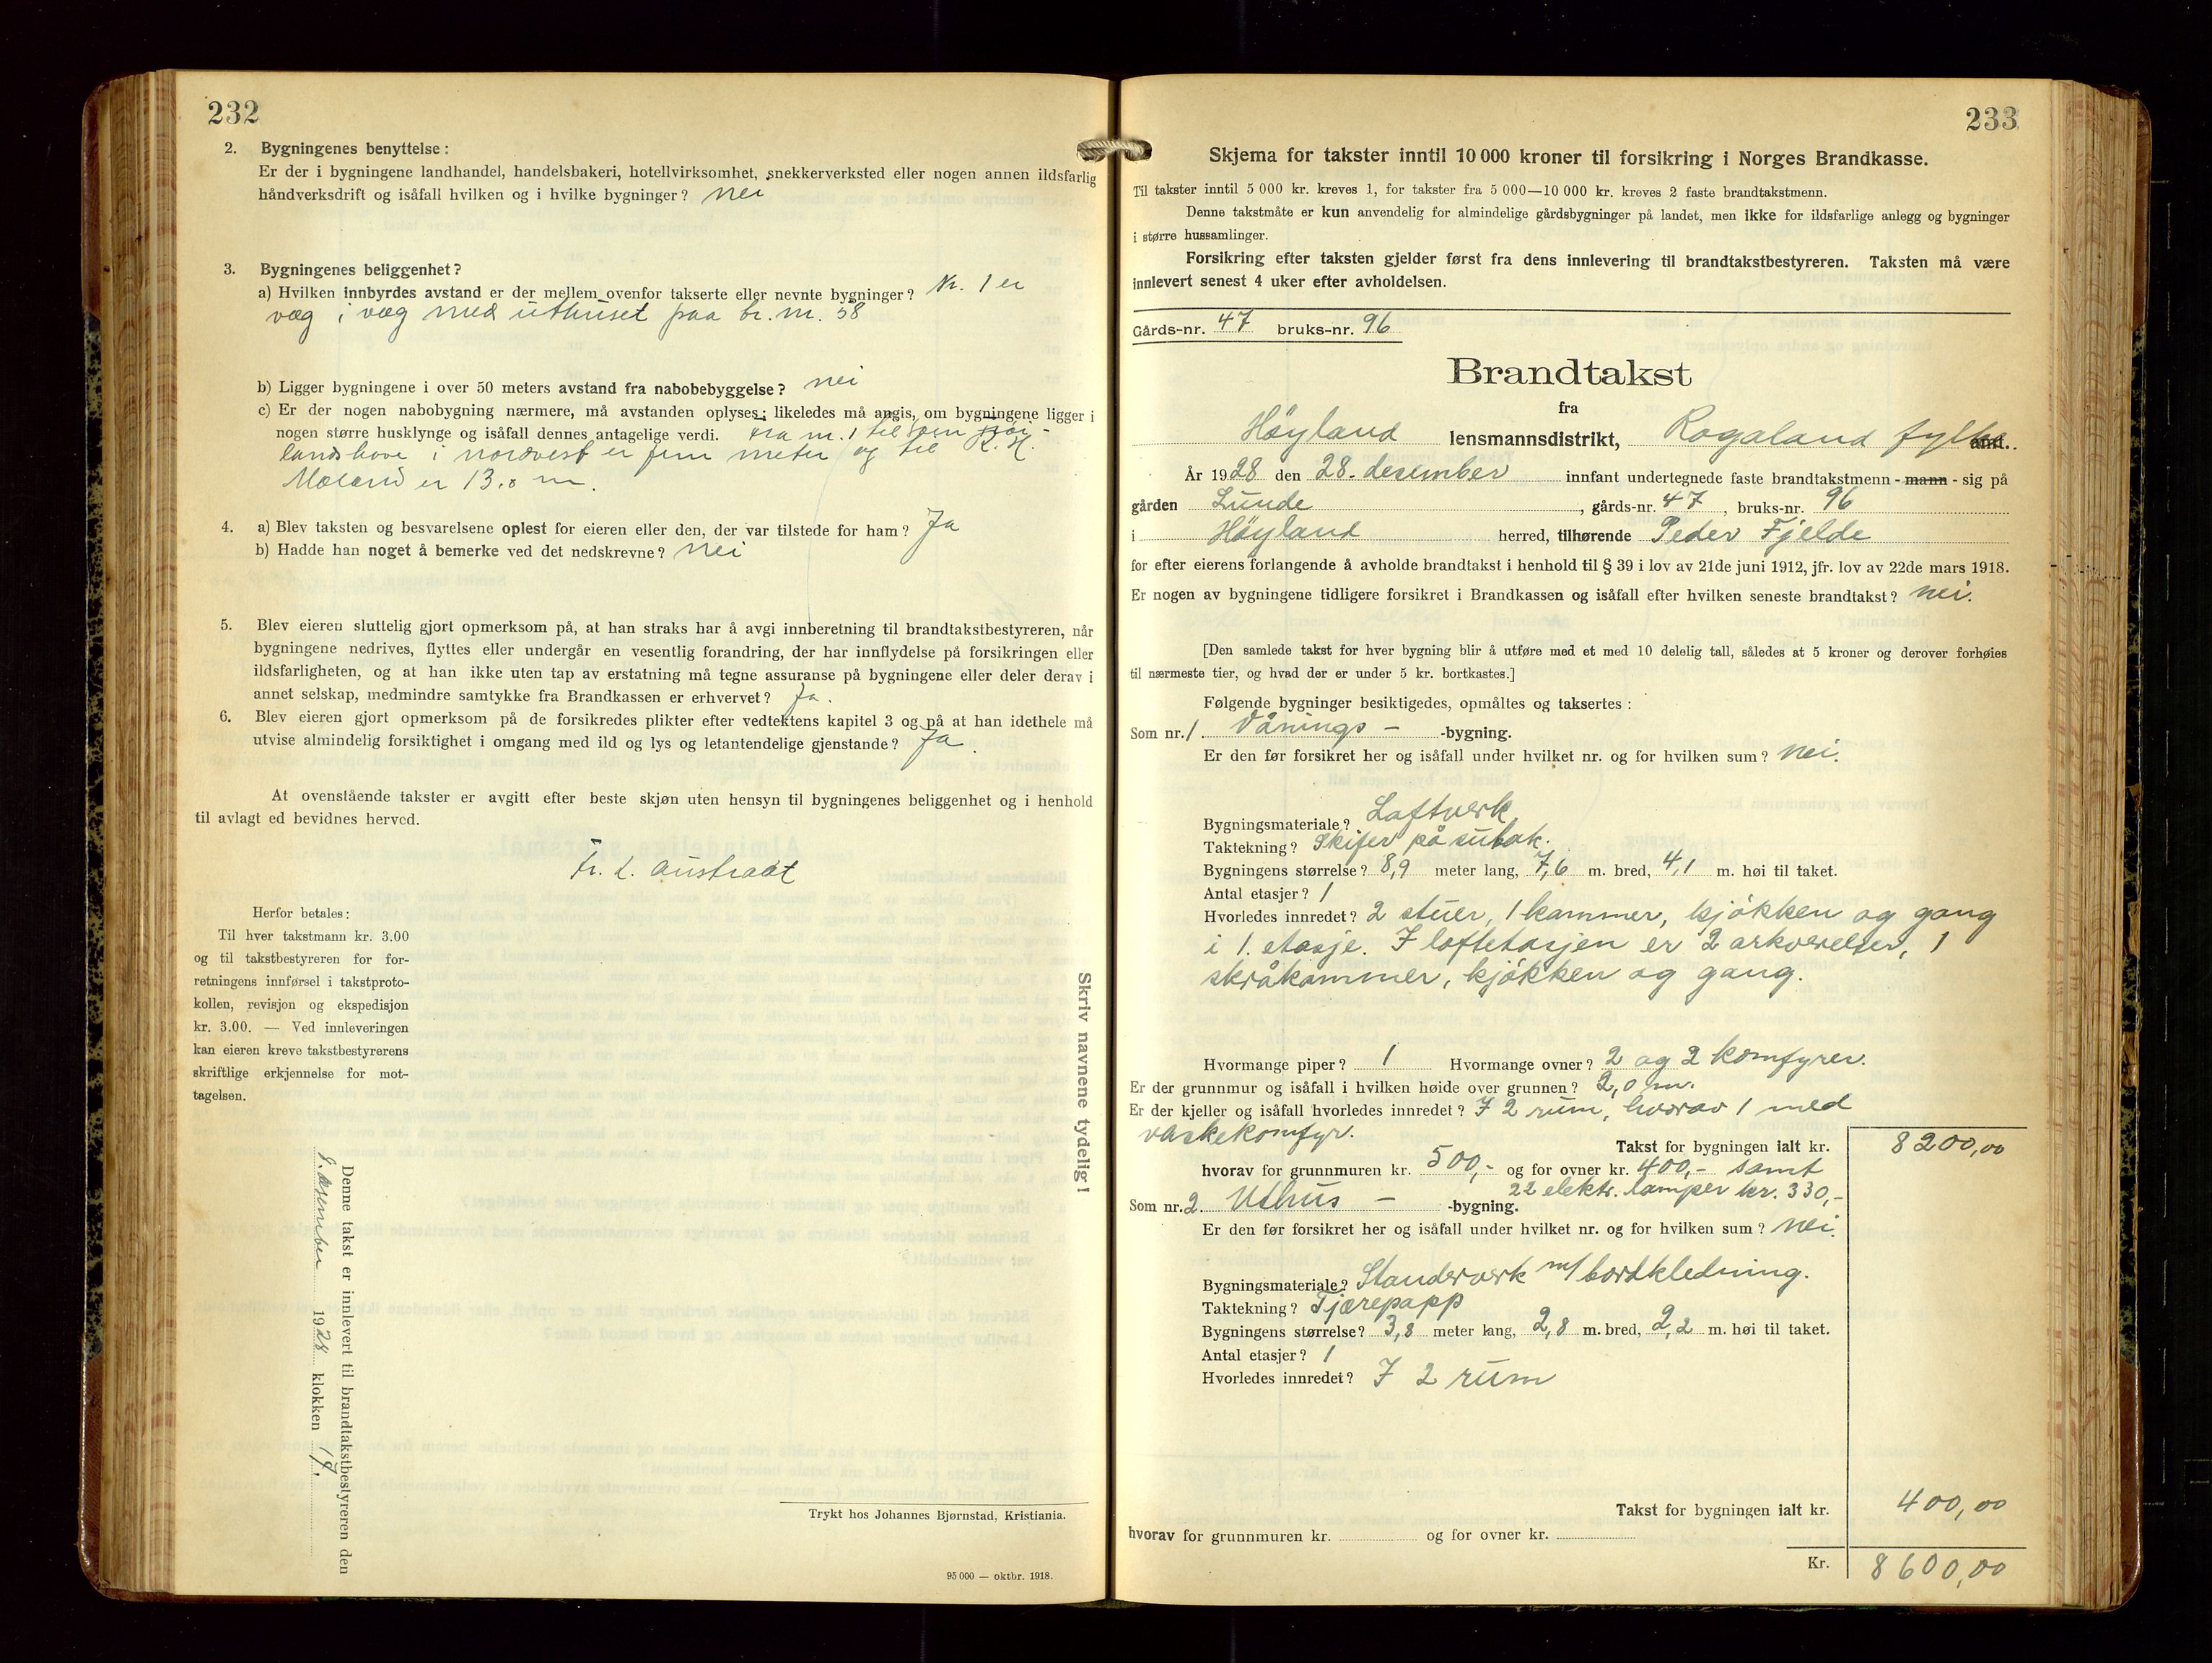 232
2. Bygningenes benyttelse:
Er der i bygningene landhandel, handelsbakeri, hotellvirksomhet, snekkerverksted eller nogen annen ildsfarlig
håndverksdrift og isåfall hvilken og i hvilke bygninger? nei
3. Bygningenes beliggenhet?
a) Hvilken innbyrdes avstand er der mellem ovenfor takserte eller nevnte bygninger? Nr. 1 er
væg i væg med uthuset paa br. nr. 58
b) Ligger bygningene i over 50 meters avstand fra nabobebyggelse? nei
c) Er der nogen nabobygning nærmere, må avstanden oplyses; likeledes må angis, om bygningene ligger i
nogen større husklynge og isåfall dennes antagelige verdi. Fra nr. 1 til
i nordvest er fem meter og til K. H.
er 13.0 m.
4. a) Blev taksten og besvarelsene oplest for eieren eller den, der var tilstede for ham? Ja
b) Hadde han noget å bemerke ved det nedskrevne? nei
5. Blev eieren sluttelig gjort opmerksom på, at han straks har å avgi innberetning til brandtakstbestyreren, når
bygningene nedrives, flyttes eller undergår en vesentlig forandring, der har innflydelse på forsikringen eller
ildsfarligheten, og at han ikke uten tap av erstatning må tegne assuranse på bygningene eller deler derav i
annet selskap, medmindre samtykke fra Brandkassen er erhvervet? Ja.
6. Blev eieren gjort opmerksom på de forsikredes plikter efter vedtektens kapitel 3 og på at han idethele må
utvise almindelig forsiktighet i omgang med ild og lys og letantendelige gjenstande? Ja.
At ovenstående takster er avgitt efter beste skjøn uten hensyn til bygningenes beliggenhet og i henhold
til avlagt ed bevidnes herved.
Fr. L. Austraat
Herfor betales:
Til hver takstmann kr. 3.00
og til takstbestyreren for for-
retningens innførsel i takstproto-
kollen, revisjon og ekspedisjon
kr. 3.00. — Ved innleveringen
kan eieren kreve takstbestyrerens
skriftlige erkjennelse for mot-
tagelsen.
Skriv navnene tydelig!
Denne takst er innlevert til brandtakstbestyreren den
desember 1928 klokken 17.
Trykt hos Johannes Bjørnstad, Kristiania.
95 000 — oktbr. 1918.
233
Skjema for takster inntil 10 000 kroner til forsikring i Norges Brandkasse.
Til takster inntil 5 000 kr. kreves 1, for takster fra 5 000—10 000 kr. kreves 2 faste brandtakstmenn.
Denne takstmåte er kun anvendelig for almindelige gårdsbygninger på landet, men ikke for ildsfarlige anlegg og bygninger
i større hussamlinger.
Forsikring efter taksten gjelder først fra dens innlevering til brandtakstbestyreren. Taksten må være
innlevert senest 4 uker efter avholdelsen.
Gårds-nr. 47 bruks-nr. 96
Brandtakst
fra
Höyland lensmannsdistrikt, Rogaland fylke amt.
År 1928 den 28. desember innfant undertegnede faste brandtakstmenn - mann - sig på
gården Lunde, gårds-nr. 47, bruks-nr. 96
i Höyland herred, tilhørende Peder Fjelde
for efter eierens forlangende å avholde brandtakst i henhold til § 39 i lov av 21de juni 1912, jfr. lov av 22de mars 1918.
Er nogen av bygningene tidligere forsikret i Brandkassen og isåfall efter hvilken seneste brandtakst? nei.
[Den samlede takst for hver bygning blir å utføre med et med 10 delelig tall, således at 5 kroner og derover forhøies
til nærmeste tier, og hvad der er under 5 kr. bortkastes.]
Følgende bygninger besiktigedes, opmåltes og taksertes:
Som nr. 1 Vånings - -bygning.
Er den før forsikret her og isåfall under hvilket nr. og for hvilken sum? nei.
Bygningsmateriale? Loftverk
Taktekning? Skifer på subak.
Bygningens størrelse? 8,9 meter lang, 7,6 m. bred, 4,1 m. høi til taket.
Antal etasjer? 1
Hvorledes innredet? 2 stuer, 1 kammer, kjøkken og gang
i 1. etasje. I loftetasjen er 2 arkværelser, 1
skråkammer, kjøkken og gang.
Hvormange piper? 1 Hvormange ovner? 2 og 2 komfyrer.
Er der grunnmur og isåfall i hvilken høide over grunnen? 2,0 m.
Er der kjeller og isåfall hvorledes innredet? I 2 rum, hvorav 1 med
vaskekomfyr.
Takst for bygningen ialt kr. 8200,00
hvorav for grunnmuren kr. 500,- og for ovner kr. 400,- samt
22 elektr. lamper kr. 330,-
Som nr. 2. Uthus - -bygning.
Er den før forsikret her og isåfall under hvilket nr. og for hvilken sum? nei.
Bygningsmateriale? Standerverk m/ bordkledning.
Taktekning? Tjærepapp
Bygningens størrelse? 3,8 meter lang, 2,8 m. bred, 2,2 m. høi til taket.
Antal etasjer? 1
Hvorledes innredet? I 2 rum
Takst for bygningen ialt kr. 400,00
hvorav for grunnmuren kr. og for ovner kr.
Kr. 8600,00